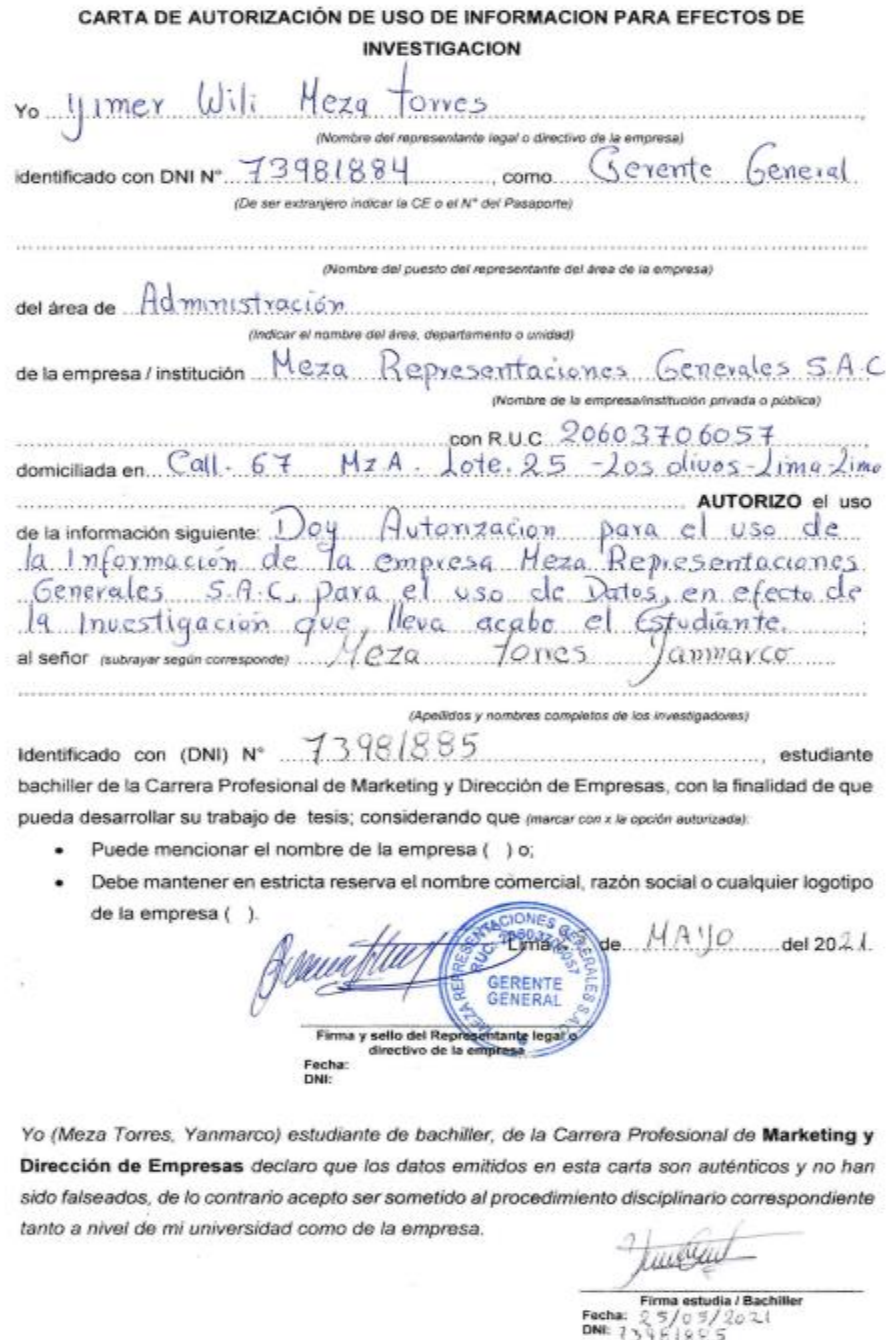 CARTA DE AUTORIZACIÓN DE USO DE INFORMACION PARA EFECTOS DE
INVESTIGACION
Yo Yimer Wili Meza Torres
(Nombre del representante legal o directivo de la empresa)
identificado con DNI N° 73981884, como Gerente General
(De ser extranjero indicar la CE o el N° del Pasaporte)
(Nombre del puesto del representante del área de la empresa)
del área de Administración
(Indicar el nombre del área, departamento o unidad)
de la empresa / institución Meza Representaciones Generales S.A.C
(Nombre de la empresa/institución privada o pública)
con R.U.C 20603706057
domiciliada en Call. 67 Mz A. Lote. 25 - Los olivos - Lima-Lima
AUTORIZO el uso
de la información siguiente: Doy Autorizacion para el uso de
la Información de la empresa Meza Representaciones
Generales S.A.C, para el uso de Datos, en efecto de
la Investigación que lleva acabo el Estudiante. ;
al señor (subrayar según corresponde) Meza Torres Yanmarco
(Apellidos y nombres completos de los investigadores)
Identificado con (DNI) N° 73981885, estudiante
bachiller de la Carrera Profesional de Marketing y Dirección de Empresas, con la finalidad de que
pueda desarrollar su trabajo de tesis; considerando que (marcar con x la opción autorizada):
• Puede mencionar el nombre de la empresa ( ) o;
• Debe mantener en estricta reserva el nombre comercial, razón social o cualquier logotipo
de la empresa ( ).
Lima de MAYO del 2021
MEZA REPRESENTACIONES GENERALES S.A.C.
RUC. 20603706057
GERENTE
GENERAL
Firma y sello del Representante legal o
directivo de la empresa
Fecha:
DNI:
Yo (Meza Torres, Yanmarco) estudiante de bachiller, de la Carrera Profesional de Marketing y
Dirección de Empresas declaro que los datos emitidos en esta carta son auténticos y no han
sido falseados, de lo contrario acepto ser sometido al procedimiento disciplinario correspondiente
tanto a nivel de mi universidad como de la empresa.
Firma estudia / Bachiller
Fecha: 25/05/2021
DNI: 73981885